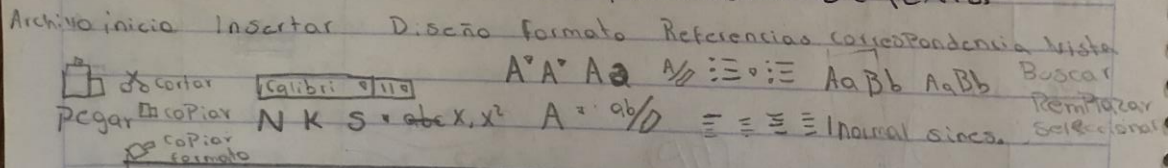 Archivo inicio Insertar Diseño formato Referencias correspondencia Vista
cortar Calibri 11 A A Aa A AaBb AaBb Buscar
Pegar copiar N K S abc x, x² A ab Inormal sines. Remplazar
copiar formato seleccionar